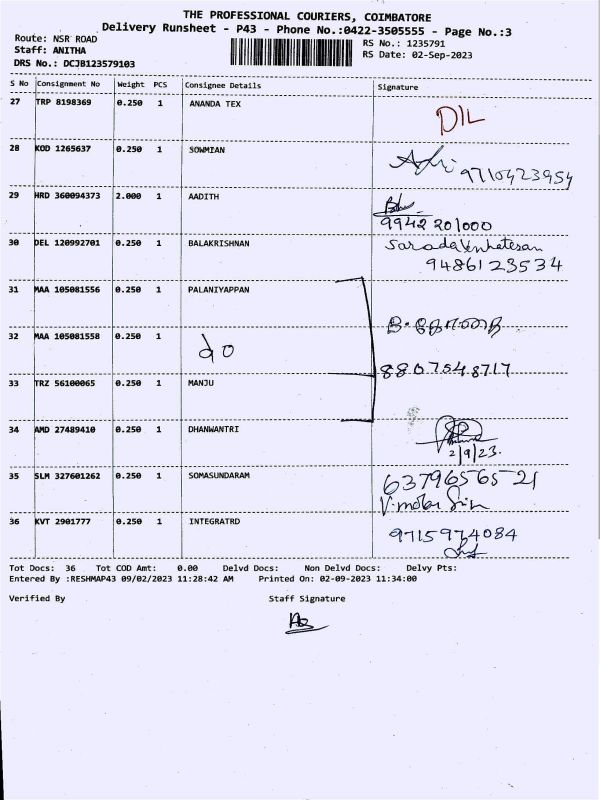 THE PROFESSIONAL COURIERS, COIMBATORE
Delivery Runsheet - P43 - Phone No.:0422-3505555 - Page No.:3
Route: NSR ROAD
RS No.: 1235791
Staff: ANITHA
RS Date: 02-Sep-2023
DRS No.: DCJB123579103
S No Consignment No Weight PCS Consignee Details Signature
27 TRP 8198369 0.250 1 ANANDA TEX
DIL
28 KOD 1265637 0.250 1 SOWMIAN
9710423954
29 HRD 360094373 2.000 1 AADITH
9942201000
30 DEL 120992701 0.250 1 BALAKRISHNAN
Sarada Venkatesan
9486123534
31 MAA 105081556 0.250 1 PALANIYAPPAN
32 MAA 105081558 0.250 1 do
8807548717
33 TRZ 56100065 0.250 1 MANJU
34 AMD 27489410 0.250 1 DHANWANTRI
2/9/23.
35 SLM 327601262 0.250 1 SOMASUNDARAM
6379656521
36 KVT 2901777 0.250 1 INTEGRATRD
9715974084
Tot Docs: 36 Tot COD Amt: 0.00 Delvd Docs: Non Delvd Docs: Delvy Pts:
Entered By :RESHMAP43 09/02/2023 11:28:42 AM Printed On: 02-09-2023 11:34:00
Verified By Staff Signature